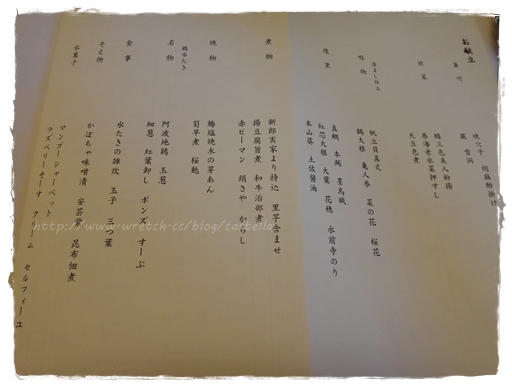 お献立
先付 焼穴子 胡麻酢掛け
蕨 雪洞
前菜 鱒三色美人粉揚
巻海老水菜押すし
天豆艶煮
清ましじたて
吸物 帆立貝真丈 菜の花 桜花
鶴大根 亀人参
造里 真鯛 本鮪 墨烏賊
紅芯大根 大葉 花穂 水前寺のり
本山葵 土佐醤油
煮物 新郎実家より持込 里芋含ませ
揚豆腐旨煮 和牛治部煮
赤ピーマン 絹さや からし
焼物 鰆塩焼木の芽あん
筍早煮 桜麩
鶏水たき
名物 阿波地鶏 玉葱
細葱 紅葉卸し ポンズ すーぷ
食事 水たきの雑炊 玉子 三つ葉
そえ物 かぼちゃ味噌漬 安芸紫 昆布佃煮
水菓子 マンゴーシャーベット
ラズベリーそーす クリーム セルフィーユ
http://www.wretch.cc/blog/castella